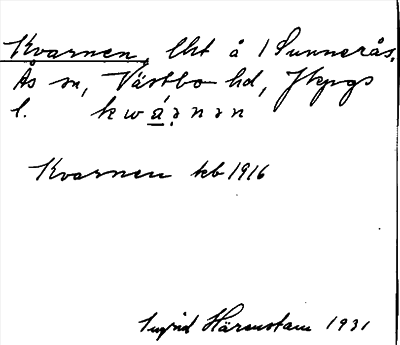 Kvarnen, lht å 1 Sunnerås,
Ås sn, Västbo hd, Jkpgs
l. kwá̱ṛnən
Kvarnen kb 1916
Ingrid Härenstam 1931